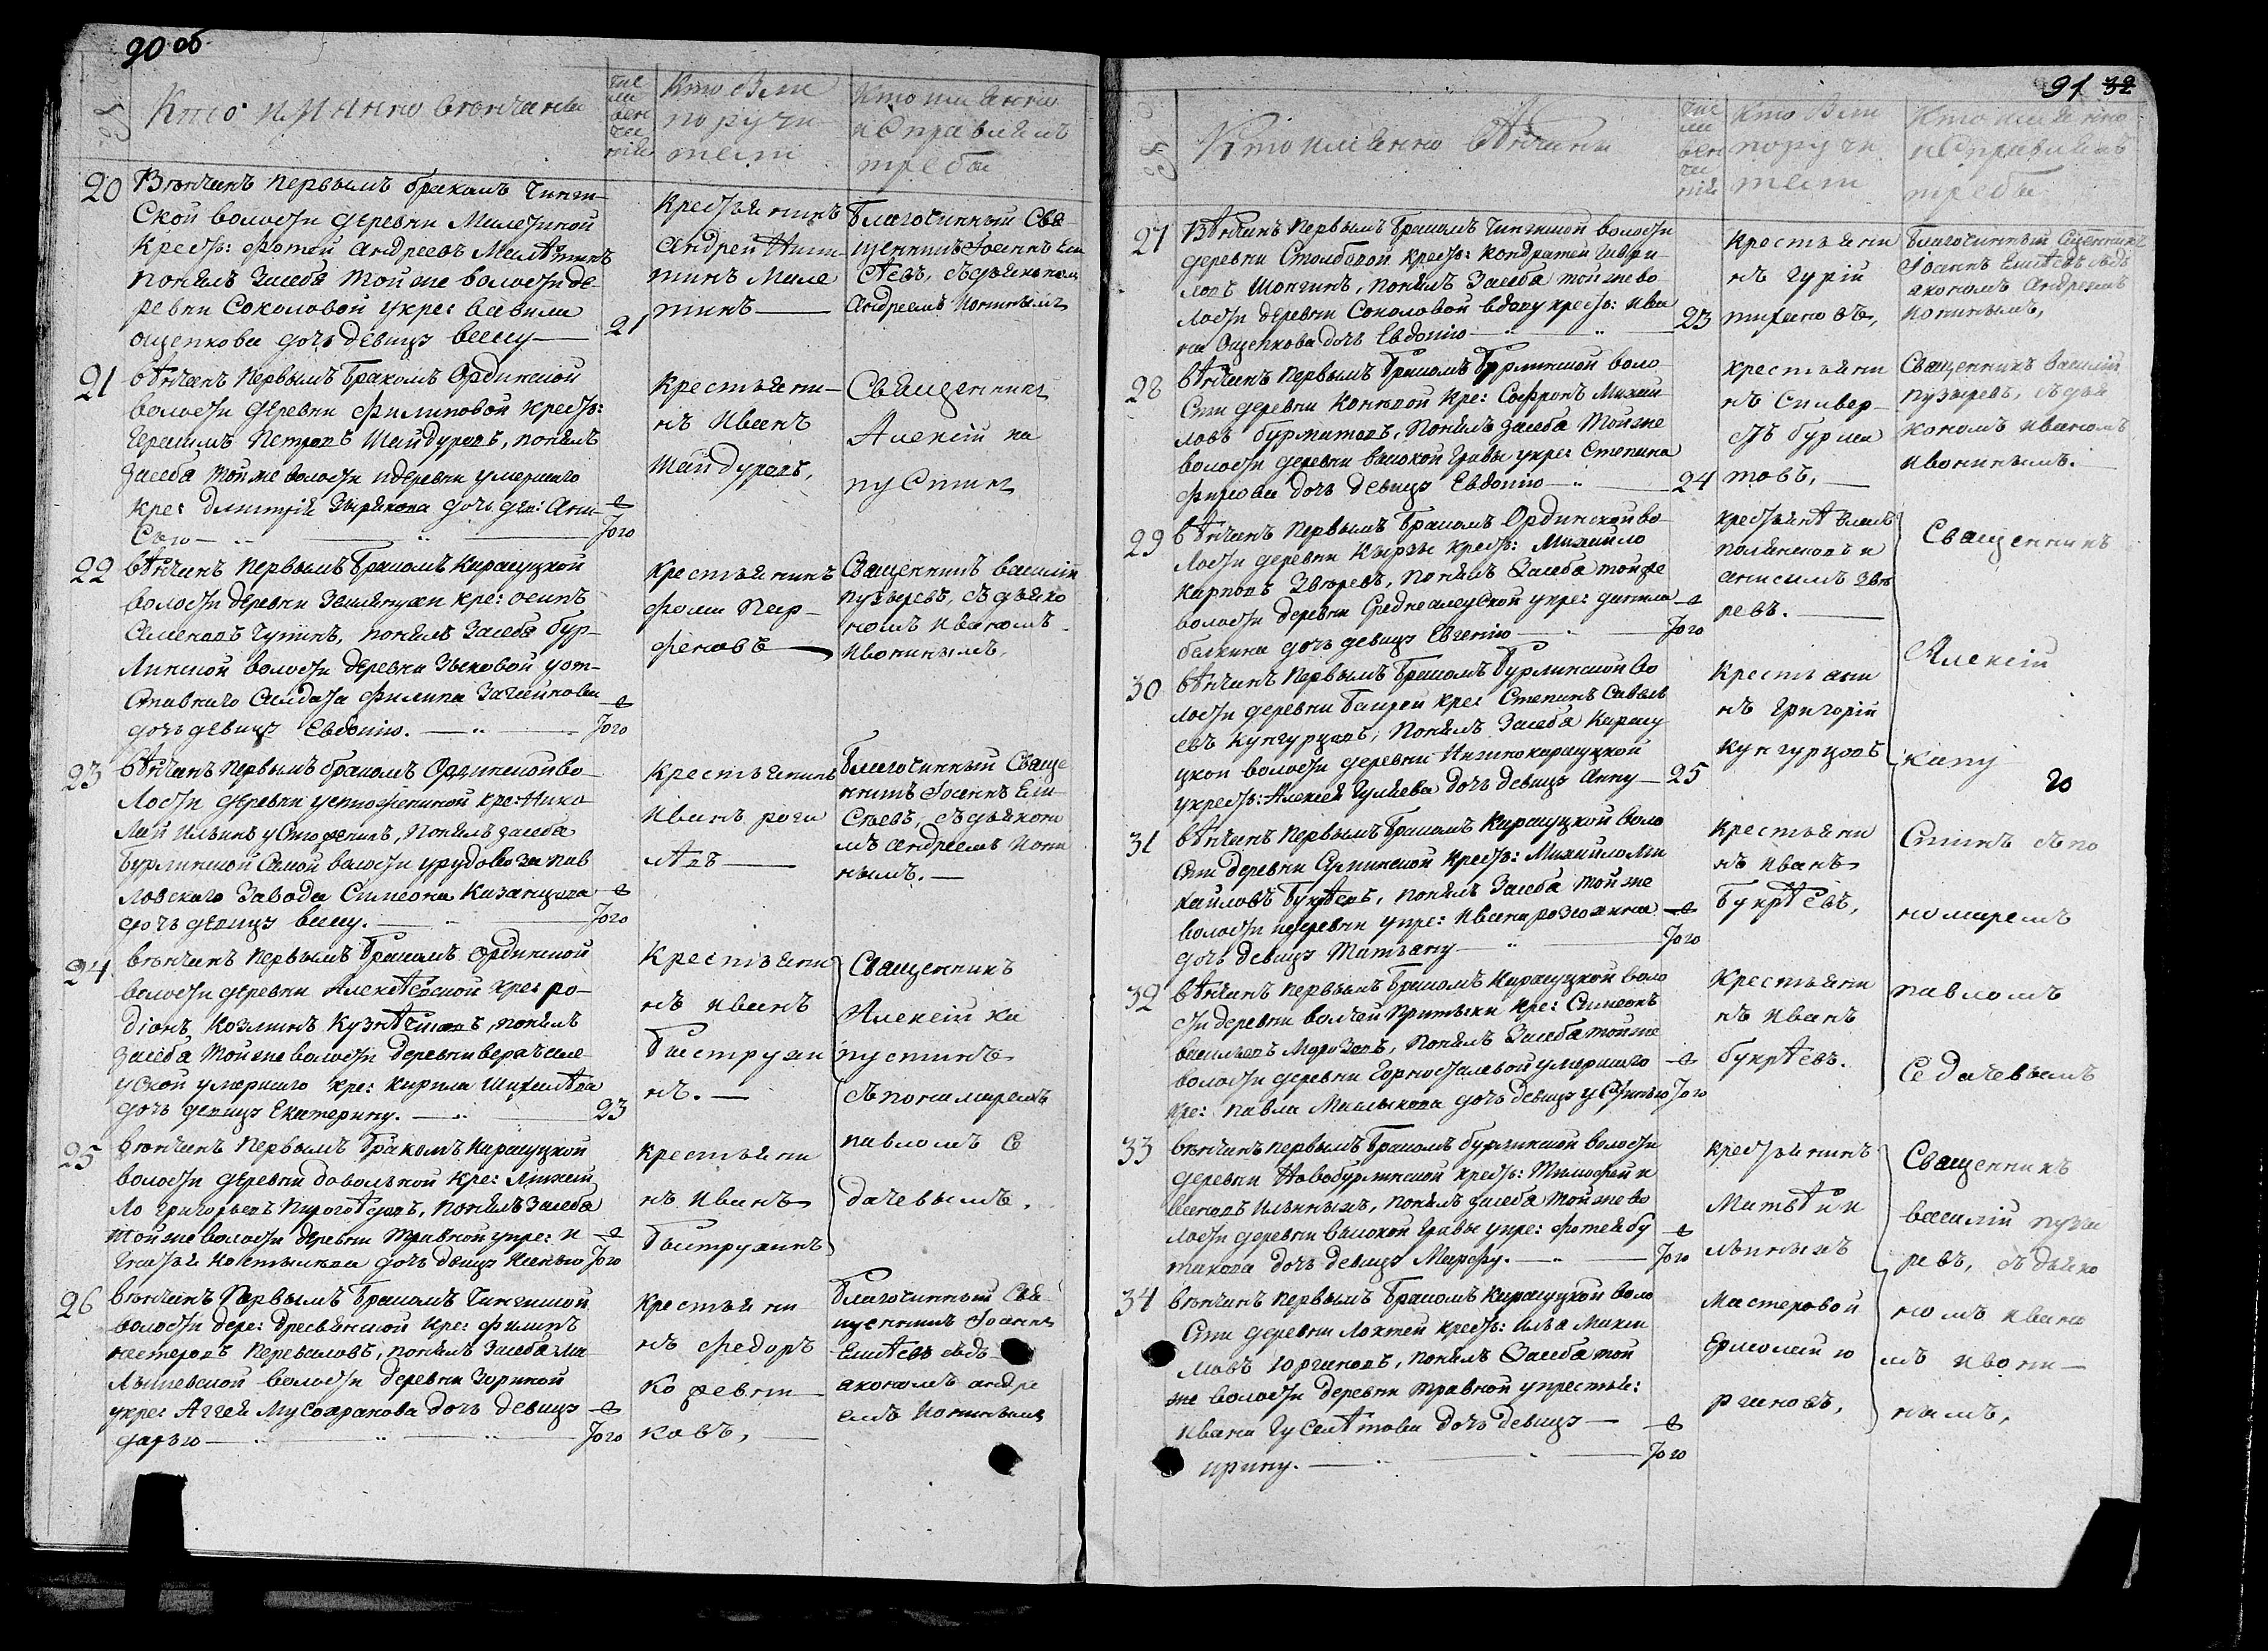 90 об
Кто имянно венчаны
Кто были
поручи
тели
Кто имянно
исправлялъ
требы
20 Венчанъ первымъ бракомъ Чинги-
ской волости деревни Милетиной
Крест: Фотей Андреевъ Милѣтинъ
понялъ засебя тойже волости де
ревни Соколовой у кре: Вавила
Ощепкова дочь девицу Вассу
21
Крестьянинъ
Андрей Ники
тинъ Миле
тинъ
Благочинный Свя
щенникъ Иоаннъ Ели
сѣевъ, съ дьякономъ
Андреемъ Иониным
21 вѣнчанъ первымъ бракомъ Ординской
волости деревни Филиповой крест:
Герасимъ Петровъ Шайдуровъ, понялъ
засебя тойже волости и деревни умершаго
кре: Димитрия Зырянова дочь дев: Ани-
сью
Того
Крестьяни-
нъ Иванъ
Шайдуровъ,
Священникъ
Алексій Ка
пустинъ
22 вѣнчанъ первымъ бракомъ Карасуцкой
волости деревни кре: Осипъ
Семеновъ Чупинъ, понялъ засебя Бур-
линской волости деревни Зыковой у от-
ставнаго Салдата Филипа
дочь девицу Евдокию.
Того
Крестьянинъ
Фома Пар-
феновъ
Священникъ Василій
Пузыревъ, съ дьяко
номъ Иваномъ
Иониным,
23 вѣнчанъ первымъ бракомъ Ординской во-
лости деревни кре: Нико-
лай Ильинъ понялъ засебя
Бурлинской самой волости у рудовоза Пав
ловскаго Завода Симеона Казанцова
дочь девицу Вассу.
Того
Крестьянинъ
Иванъ Рога
лѣвъ
Благочинный Свяще
нникъ Иоаннъ Ели-
сѣевъ, съ дьяконо
мъ Андреемъ Иони
нымъ.
24 венчанъ первымъ бракомъ Ординской
волости деревни Алексѣевской кре: Ро-
діонъ Козминъ понялъ
засебя тойже волости деревни Верхъ-але-
уской умершаго кре: Кирила
дочь девицу Екатерину.
23
Крестьяни
нъ Иванъ
Быструхи
нъ.
Священникъ
Алексій Ка
пустинъ
съ пономаремъ
Павломъ Се
дачевымъ.
25 венчанъ первымъ бракомъ Карасуцкой
волости деревни Довольной кре: Михай
ло Григорьевъ понялъ засебя
тойже волости деревни Травной у кре: И
гнатья дочь девицу Ксенью
Того
Крестьяни
нъ Иванъ
Быструхинъ
26 венчанъ первымъ бракомъ Чингиской
волости дере: Дресвянской кре: Филипъ
Нестеровъ Переваловъ, понялъ засебя Ма
лышевской волости деревни Зориной
у кре: Аггея Мусохранова дочь девицу
Дарью
Того
Крестьяни
нъ Федоръ
Кожевни
ковъ,
Благочинный Свя-
щенникъ Иоаннъ
Елисѣевъ съ дь
якономъ Андре
емъ Иониным
91 32
Кто имянно вѣнчаны
Кто были
поручи
тели
Кто имянно
исправлялъ
требы
27 Вѣнчанъ первымъ бракомъ Чингиской волости
деревни Столбовой крест: Кондратей Гаври-
ловъ Шангинъ, понялъ засебя тойже во
лости деревни Соколовой вдову крест: Ива
на Ощепкова дочь Евдокию
23
Крестьяни
нъ Гурій
Тихановъ,
Благочинный Священникъ
Іоаннъ Елисѣевъ съ дь
якономъ Андреемъ
Ионинымъ,
28 вѣнчанъ первымъ бракомъ Бурлинской воло
сти деревни Коневой кре: Софронъ Михай
ловъ Бурматовъ, понялъ засебя тойже
волости деревни Высокой Гривы у кре: Степана
Фирсова дочь девицу Евдокию
24
Крестьяни
нъ Сильвер-
стъ Бурма
товъ,
Священникъ Василій
Пузыревъ, съ дья
кономъ Иваномъ
Ионинымъ.
29 вѣнчанъ первымъ бракомъ Ординской во-
лости деревни Кырзы крест: Михайло
Карповъ Звѣревъ, понялъ засебя тойже
волости деревни Среднеалеуской у кре: Данила
Белкина дочь девицу Евгению
Того
Анисимъ Звѣ
ревъ.
Священникъ
Алексій
Капу
стинъ съ по
номаремъ
Павломъ
Седачевымъ
30 вѣнчанъ первымъ бракомъ Бурлинской во
лости деревни кре: Степанъ Савель
евъ Кунгурцовъ, понялъ засебя Карасу
цкой волости деревни Нижнокарасуцкой
у крест: Алексея Гуляева дочь девицу Анну
25
Крестьяни
нъ Григорій
Кунгурцовъ
20
31 вѣнчанъ первымъ бракомъ Карасуцкой воло
сти деревни крест: Михайло Ми
хайловъ Букрѣевъ, понялъ засебя тойже
волости и деревни у кре: Ивана
дочь девицу Татьяну
Того
Крестьяни
нъ Иванъ
Букрѣевъ,
32 вѣнчанъ первымъ бракомъ Карасуцкой воло
сти деревни Волчей Притыки кре: Симеонъ
Васильевъ Морозовъ, понялъ засебя тойже
волости деревни Горносталевой умершаго
кре: Павла дочь девицу Устинью
Того
Крестьяни
нъ Иванъ
Букрѣевъ.
33 венчанъ первымъ бракомъ Бурлинской волости
деревни Новобурлинской крест: Тимофей
Ильиныхъ, понялъ засебя тойже во
лости деревни Высокой Гривы у кре: Фотея Бу
такова дочь девицу Марфу.
Того
Крестьянинъ
Матвѣй И
льиныхъ
Священникъ
Василій Пузы
ревъ, съ дьяко
номъ Ивано
мъ Иони-
нымъ,
34 венчанъ первымъ бракомъ Карасуцкой воло
сти деревни Локтей крест: Илья Макси
мовъ Юргановъ, понялъ засебя той
же волости деревни Травной у крестья:
Ивана Гуселѣтова дочь девицу
Ирину.
Того
Мастеровой
Ермолай Ю
ргановъ,